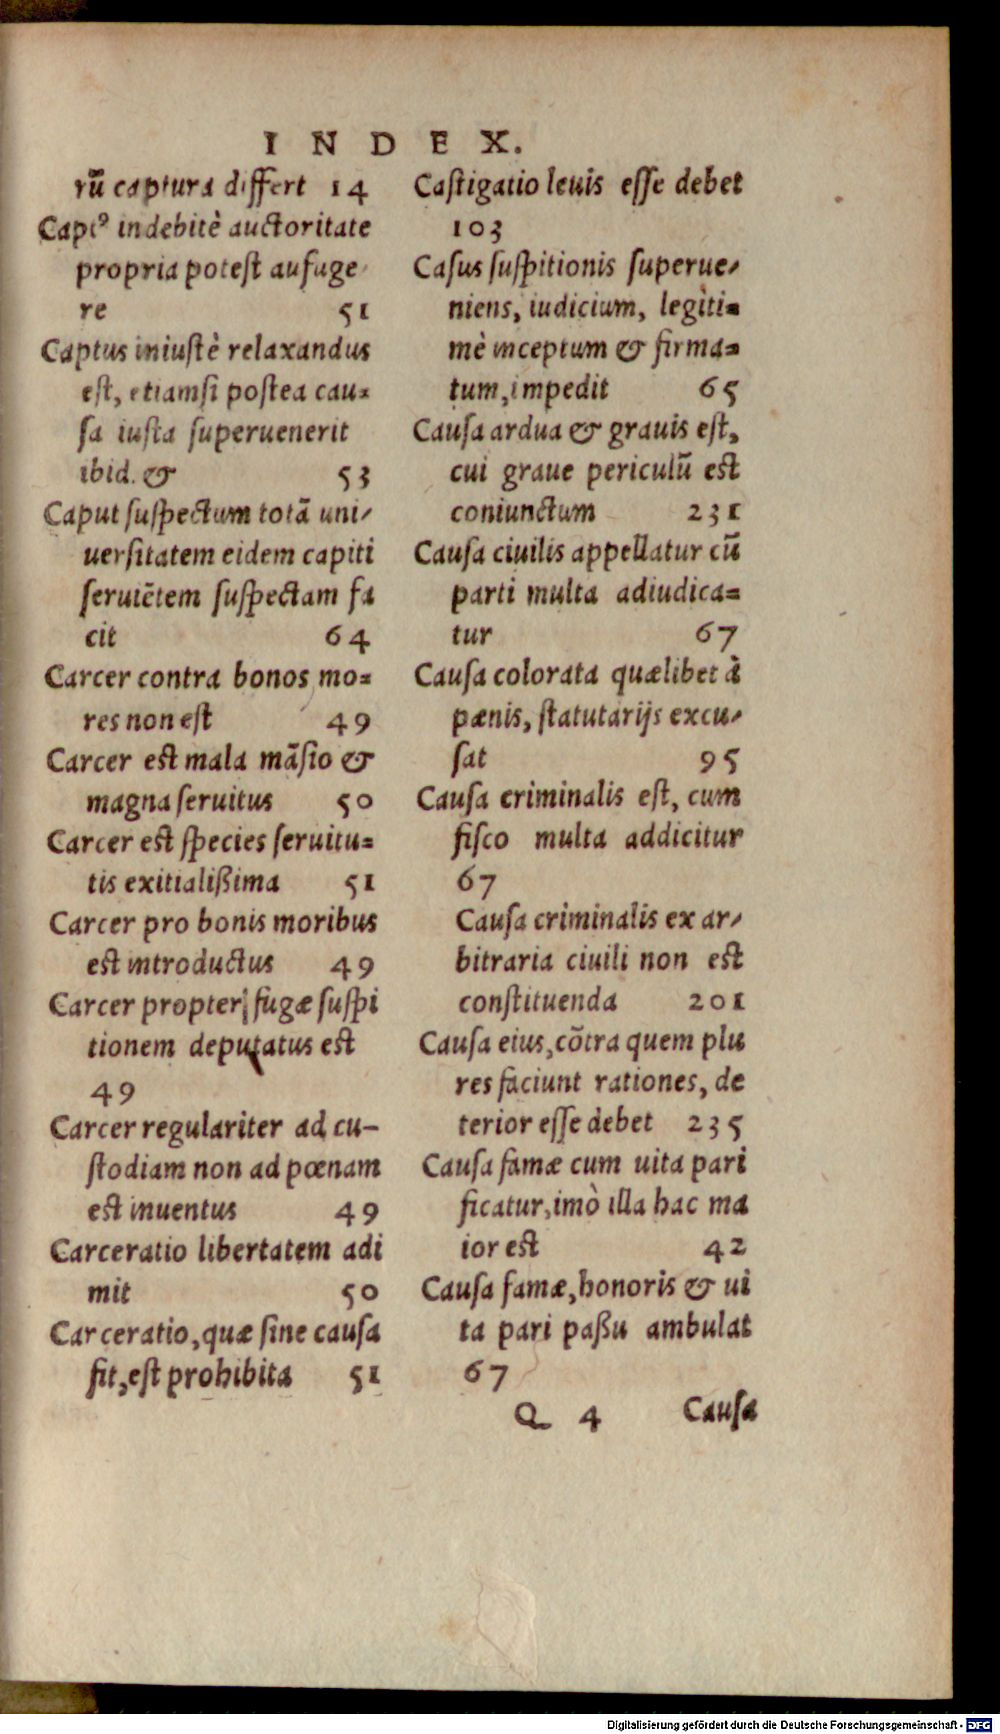 INDEX.
rū captura differt 14
Capt⁹ indebitè auctoritate
propria potest aufuge
re 51
Captus iniustè relaxandus
est, etiamsi postea cau-
sa iusta superuenerit
ibid. & 53
Caput suspectum totā uni-
uersitatem eidem capiti
seruiētem suspectam fa
cit 64
Carcer contra bonos mo-
res non est 49
Carcer est mala māsio &
magna seruitus 50
Carcer est species seruitu-
tis exitialißima 51
Carcer pro bonis moribus
est introductus 49
Carcer propter fugæ suspi
tionem deputatus est
49
Carcer regulariter ad cu-
stodiam non ad pœnam
est inuentus 49
Carceratio libertatem adi
mit 50
Carceratio, quæ sine causa
fit, est prohibita 51
Castigatio leuis esse debet
103
Casus suspitionis superue-
niens, iudicium, legiti-
mè inceptum & firma-
tum, impedit 65
Causa ardua & grauis est,
cui graue periculū est
coniunctum 231
Causa ciuilis appellatur cū
parti multa adiudica-
tur 67
Causa colorata quælibet à
pænis, statutarijs excu-
sat 95
Causa criminalis est, cum
fisco multa addicitur
67
Causa criminalis ex ar-
bitraria ciuili non est
constituenda 201
Causa eius, cōtra quem plu
res faciunt rationes, de
terior esse debet 235
Causa famæ cum uita pari
ficatur, imò illa hac ma
ior est 42
Causa famæ, honoris & ui
ta pari paßu ambulat
67
Q 4 Causa
Digitalisierung gefördert durch die Deutsche Forschungsgemeinschaft - DFG